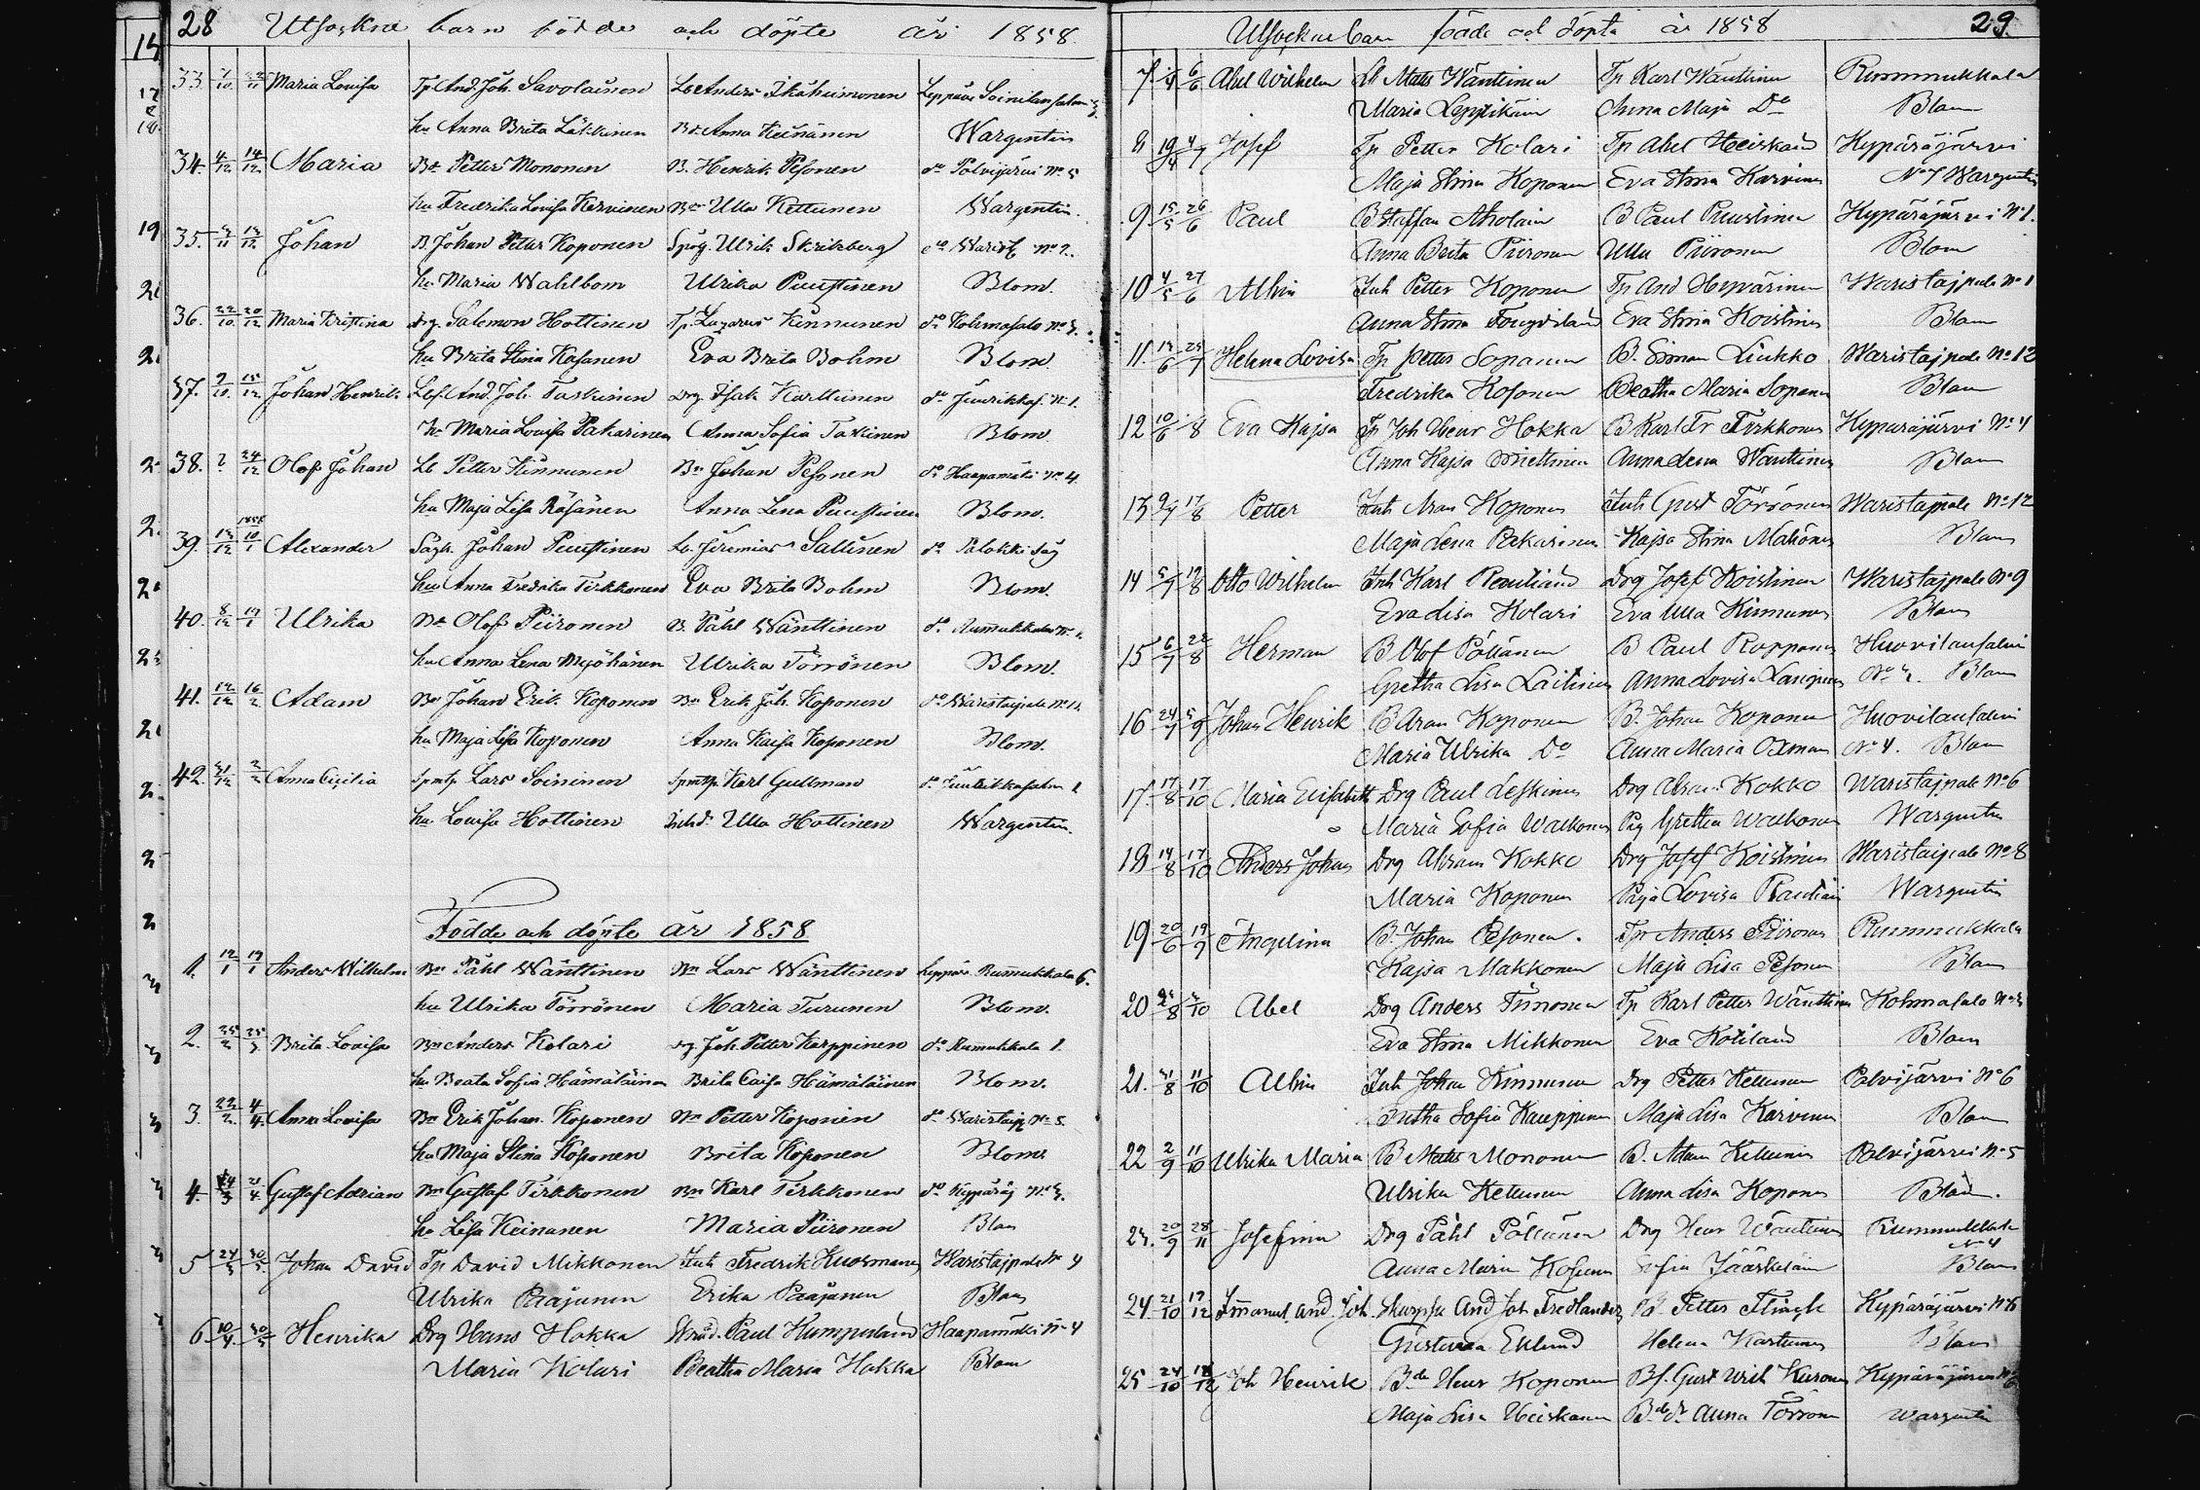 28 Utsocknes barn födde och döpte år 1858.
33. 7/10 22/11 Maria Lovisa Tp And. Joh. Savolainen Ls Anders Ikäheimonen Leppävi Soinilansalmi 3.
hu Anna Brita Läkkinen Bdr Anna Keinänen Wargentin
34. 4/12 14/12 Maria Bdr Petter Mononen B. Henrik Pesonen do Polvijärvi No 5
hu Fredrika Lovisa Kervinen Ulla Kettunen Wargentin.
35. Johan B. Johan Petter Koponen Spög. Ulrik Skrikberg do Warist No 2.
hu Maria Wahlbom Ulrika Puustinen Blom.
36. 22/10 20/12 Maria Kristina Drg. Salomon Hottinen Tp. Lazarus Kinnunen do Kohmasalo No 3.
hu Brita Stina Kosanen Eva Brita Bohm Blom.
37. 15/12 Johan Henrik And. Joh. Taskinen Drg Isak Karttunen do Juurikkas. No 1.
hu Maria Lovisa Pakarinen Anna Sofia Taskinen Blom.
38. ? 24/12 Olof Johan Ls Petter Kinnunen Bn Johan Pesonen do Haapamäki No 4.
hu Maja Lisa Räsänen Anna Lena Puustinen Blom.
39. 13/12 1858 10/1 Alexander Sågk. Johan Puustinen Ls. Jeremias Sallinen do Palokki Såg
hu Anna Fredrika Tirkkonen Eva Brita Bohm Blom.
40. 8/12 17/1 Ulrika Bn Olof Piironen B. Påhl Wänttinen do Rummukkala No
hu Anna Lena Myöhänen Ulrika Törrönen Blom.
41. 12/12 16/2 Adam Bn Johan Erik Koponen Bn Erik Joh. Koponen do Waristaipale No 12.
hu Maja Lisa Koponen Anna Kaisa Koponen Blom.
42. 31/12 2/2 Anna Cicilia Lars Soininen Karl Gullman do Juurikkasalmi 2
hu Lovisa Hottinen Inhd. Ulla Hottinen Wargentin.
Födde och döpte år 1858
1. 12/1 17/1 Anders Wilhelm Bn Påhl Wänttinen Bn Lars Wänttinen Leppävi Rummukkala 6.
hu Ulrika Törrönen Maria Turunen Blom.
2. 25/2 25/3 Brita Lovisa Bn Anders Kolari Drg. Joh. Petter Karppinen do Rummukkala 1.
hu Beata Sofia Hämäläinen Brita Caisa Hämäläinen Blom.
3. 22/2 4/4 Anna Lovisa Bn Erik Johan Koponen Bn Petter Koponen do Waristaip No 5.
hu Maja Stina Koponen Brita Koponen Blom
4. 21/4 Gustaf Adrian Bn Gustaf Tirkkonen Bn Karl Tirkkonen do Kypäräj No 3.
hu Lisa Keinanen Maria Piironen Blom
5 24/3 30/5 Johan David Tp David Mikkonen Inh Fredrik Kuosmanen Waristajpale No 4
Ulrika Paajanen Erika Paajanen Blom
6 10/4 30/5 Henrika Drg Hans Hokka Paul Humpuland Haapamäki No 4
Maria Kolari Beatha Maria Hokka Blom
Utsocknes barn födde och döpta år 1858 29.
7 6/6 Abel Wilhelm Ls Matts Wänttinen Tp Karl Wänttinen Rummukkala
Maria Leppikäin Anna Maja Do Blom
8 19/4 4/7 Josef Tp Petter Kolari Tp Abel Heiskan Kypäräjärvi
Maja Stina Koponen Eva Stina Karvinen No 7 Wargentin
9 15/5 26/6 Paul B Staffan Aholain B Paul Puustinen Kypäräjärvi No 1.
Anna Brita Piironen Ulla Piironen Blom
10 4/5 27/6 Albin Inh Petter Koponen Tp And Hyvärinen Waristajpale No 1
Anna Stina Fougvisland Eva Stina Koistinen Blom
11. 13/6 25/7 Helena Lovisa Tp Petter Sopanen B. Simon Liukko Waristajpale No 12
Fredrika Kosonen Beatha Maria Sopanen Blom
12 10/6 1/8 Eva Kajsa Tp Joh Henr Hokka B Karl Fr Tirkkonen Kypäräjärvi No 4
Anna Kajsa Miettinen Anna Lena Wänttinen Blom
13 9/7 17/8 Petter Inh Aron Koponen Inh Gust Törrönen Waristapale No 12
Maja Lena Pekarinen Kajsa Stina Malönen Blom
14 5/7 19/8 Otto Wilhelm Inh Karl Rautiain Drg Josef Koistinen Waristajpale No 9
Eva Lisa Kolari Eva Ulla Kinnunen Blom
15 6/7 22/8 Herman B Olof Pöllänen B Paul Ropponen Huovilansalmi
Gretha Lisa Laitinen Anna Lovisa No 2. Blom
16 24/7 5/9 Johan Henrik B Aron Koponen B. Johan Koponen Huovilansalmi
Maria Ulrika Do Anna Maria Oxman No 4. Blom
17. 17/8 17/10 Maria Elisabeth Drg Paul Leskinen Drg Abram Kokko Waristajpale No 6
Maria Sofia Walkonen Pig Gretha Walkonen Wargentin
18 14/8 17/10 Anders Johan Drg Abram Kokko Drg Josef Koistinen Waristaipale No 8
Maria Koponen Piga Lovisa Rautiain Wargentin
19 20/6 19/9 Angelina B. Johan Pesonen. Tp Anders Piironen Rummukkala
Kajsa Makkonen Maja Lisa Pesonen Blom
20 3/10 Abel Drg Anders Timonen Tp Karl Petter Wänttinen Kohmasalo No 3
Eva Stina Mikkonen Eva Kotiland Blom
21. 31/8 11/10 Albin Inh Johan Kinnunen Drg Petter Kettunen Polvijärvi No 6
Beatha Sofia Kauppinen Maja Lisa Karvinen Blom
22 2/9 11/10 Ulrika Maria B Matts Mononen B. Adam Kettunen Polvijärvi No 5
Ulrika Kettunen Anna Lisa Koponen Blom.
23. 20/9 28/11 Josefina Drg Påhl Pöllänen Drg Henr Wänttinen Rummukkala No 4
Anna Maria Kosunen Sofia Jääskeläin Blom
24 21/10 17/12 Imanuel And. Joh. Skarpsk And Joh Fredlander B. Petter Flinck Kypäräjärvi No 6
Gustava Eklund Helena Kartunen Blom
25 24/10 18/12 Joh Henrik Bdr Henr Koponen Bs. Gust Wilh Kuronen Kypäräjärvi No 6
Maja Lisa Heiskanen Anna Törrönen Wargentin